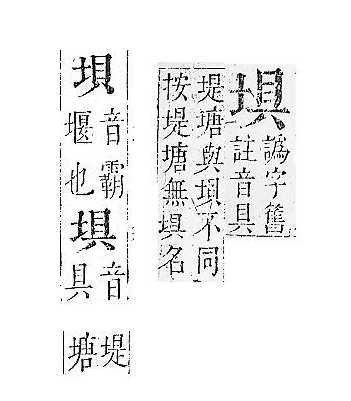 埧
譌字舊
註音具
堤塘與垻不同
按堤塘無埧名
垻
音霸
堰也
埧
音
具
堤
塘